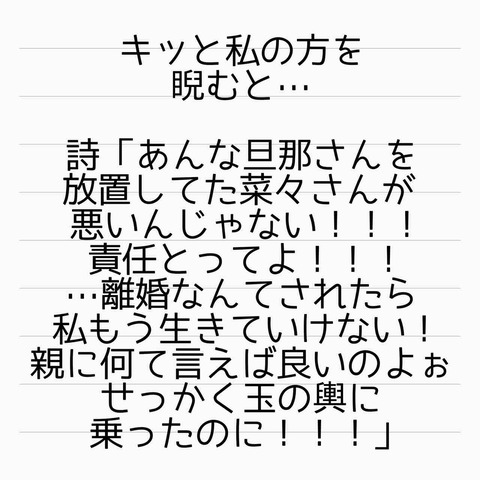 キッと私の方を
睨むと…
詩「あんな旦那さんを
放置してた菜々さんが
悪いんじゃない！！！
責任とってよ！！！
…離婚なんてされたら
私もう生きていけない！
親に何て言えば良いのよぉ
せっかく玉の輿に
乗ったのに！！！」